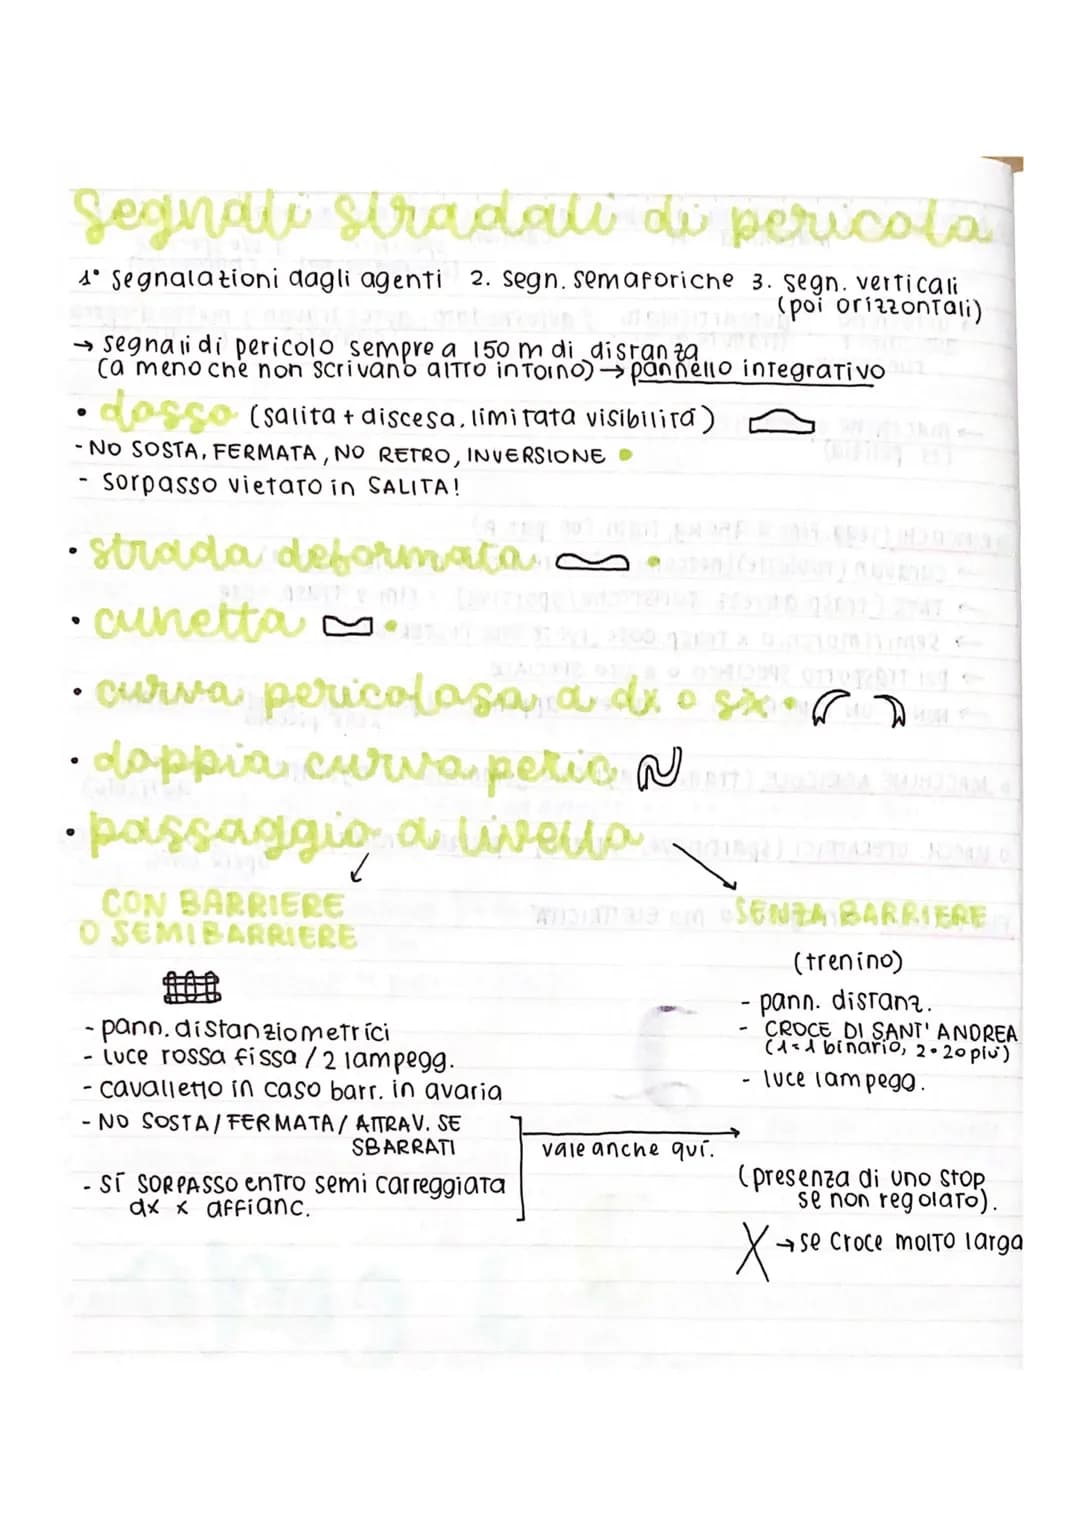 Segnali stradali di pericolo
1° segnalazioni dagli agenti 2. segn. semaforiche 3. segn. verticali
(poi orizzontali)
→ segnali di pericolo sempre a 150 m di distanza
(a meno che non scrivano altro intoino) → pannello integrativo
• dosso (salita + discesa, limitata visibilità)
- NO SOSTA, FERMATA, NO RETRO, INVERSIONE
- sorpasso vietato in SALITA!
• strada deformata
• cunetta
• curva pericolosa a dx o sx
• doppia curva peric
• passaggio a livello
CON BARRIERE
O SEMIBARRIERE
- pann. distanziometrici
- luce rossa fissa / 2 lampegg.
- cavalletto in caso barr. in avaria
- NO SOSTA / FERMATA / ATTRAV. SE
SBARRATI
- SÍ SORPASSO entro semi carreggiata
dx x affianc.
vale anche quí.
SENZA BARRIERE
(trenino)
- pann. distanz.
- CROCE DI SANT' ANDREA
(1=1 binario, 2=2 o piú)
- luce lampegg.
(presenza di uno stop
se non regolato).
X → se croce molto larga